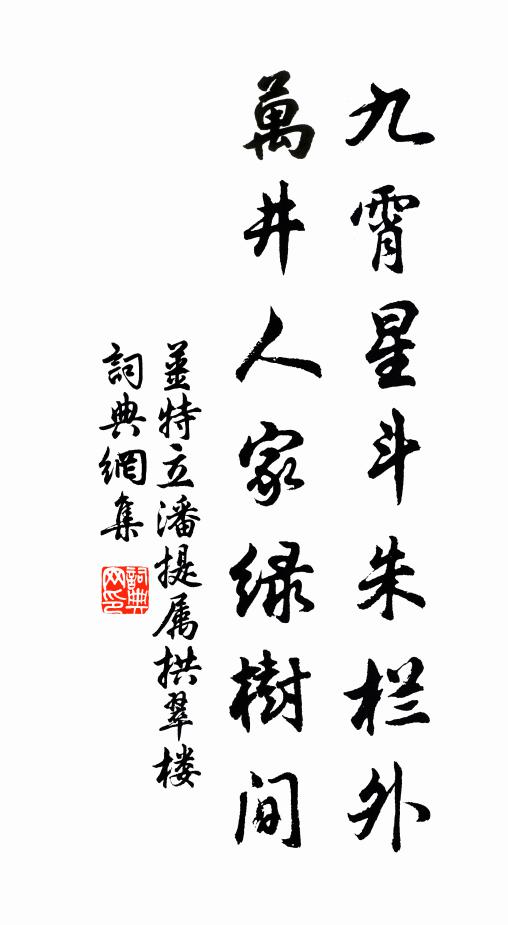 九霄星斗朱栏外
萬井人家绿樹间
姜特立潘提属拱翠楼
詞典網集
詞典网印